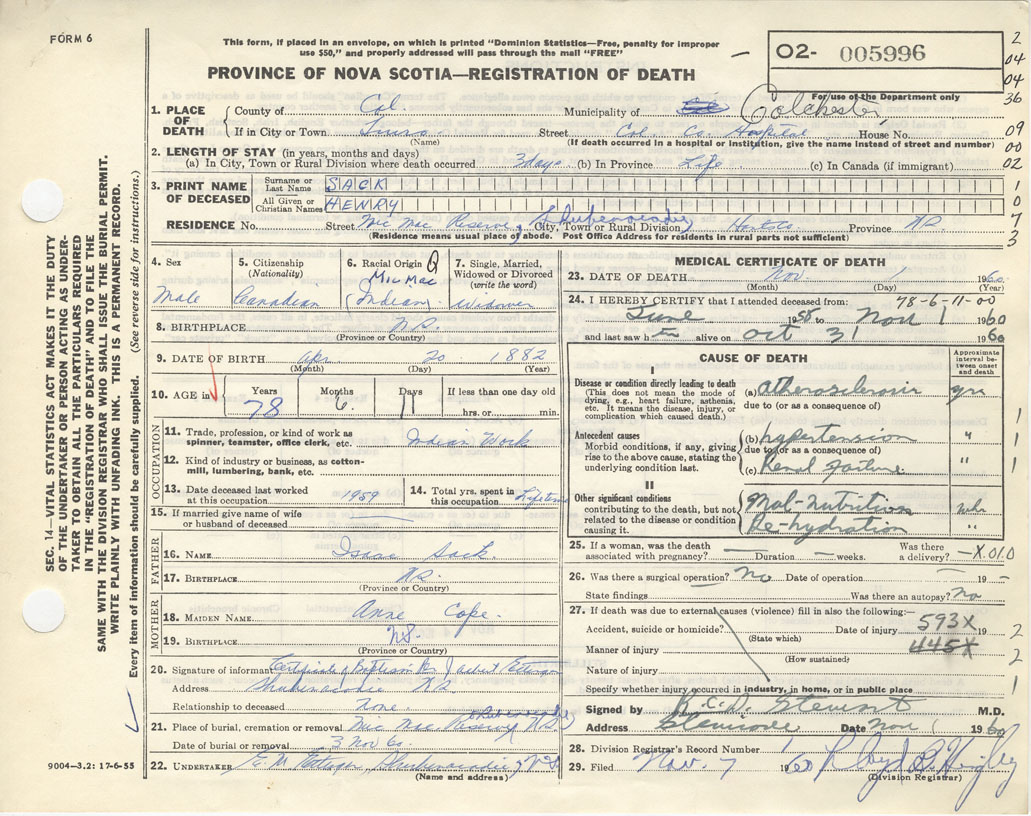 FORM 6
This form, if placed in an envelope, on which is printed "Dominion Statistics—Free, penalty for improper
use $50," and properly addressed will pass through the mail "FREE"
PROVINCE OF NOVA SCOTIA—REGISTRATION OF DEATH
O2- 005996
For use of the Department only
2
04
04
36
09
00
02
1
0
7
3
SEC. 14—VITAL STATISTICS ACT MAKES IT THE DUTY
OF THE UNDERTAKER OR PERSON ACTING AS UNDER-
TAKER TO OBTAIN ALL THE PARTICULARS REQUIRED
IN THE "REGISTRATION OF DEATH" AND TO FILE THE
SAME WITH THE DIVISION REGISTRAR WHO SHALL ISSUE THE BURIAL PERMIT.
WRITE PLAINLY WITH UNFADING INK. THIS IS A PERMANENT RECORD.
Every item of information should be carefully supplied. (See reverse side for instructions.)
1. PLACE OF DEATH
County of Col. Municipality of Colchester
If in City or Town Truro Street Col. Co. Hospital House No.
(Name) (If death occurred in a hospital or institution, give the name instead of street and number)
2. LENGTH OF STAY (in years, months and days)
(a) In City, Town or Rural Division where death occurred 3 days (b) In Province Life (c) In Canada (if immigrant)
3. PRINT NAME OF DECEASED
Surname or Last Name SACK
All Given or Christian Names HENRY
RESIDENCE No. Street Mic Mac Reserve, City, Town or Rural Division Shubenacadie Hants Co Province N.S.
(Residence means usual place of abode. Post Office Address for residents in rural parts not sufficient)
4. Sex Male
5. Citizenship (Nationality) Canadian
6. Racial Origin Mic Mac (Indian)
7. Single, Married, Widowed or Divorced (write the word) Widower
8. BIRTHPLACE N.S.
(Province or Country)
9. DATE OF BIRTH Apr. 20 1882
(Month) (Day) (Year)
10. AGE in Years 78 Months 6 Days 11 If less than one day hrs. or min.
OCCUPATION
11. Trade, profession, or kind of work as spinner, teamster, office clerk, etc. Indian Work
12. Kind of industry or business, as cotton-mill, lumbering, bank, etc.
13. Date deceased last worked at this occupation 1959
14. Total yrs. spent in this occupation Lifetime
15. If married give name of wife or husband of deceased
FATHER
16. NAME Isaac Sack
17. BIRTHPLACE N.S.
(Province or Country)
MOTHER
18. MAIDEN NAME Anne Cope
19. BIRTHPLACE N.S.
(Province or Country)
20. Signature of informant Certificate of Baptism
Address Shubenacadie N.S.
Relationship to deceased none.
21. Place of burial, cremation or removal Mic Mac Reserve Shubenacadie N.S.
Date of burial or removal 3 Nov 60.
22. UNDERTAKER E. M. Shubenacadie, N.S.
(Name and address)
9004—3.2: 17-6-55
MEDICAL CERTIFICATE OF DEATH
23. DATE OF DEATH Nov. 1 1960
(Month) (Day) (Year)
24. I HEREBY CERTIFY that I attended deceased from: 78-6-11-00
June 1958 to Nov 1 1960
and last saw h im alive on Oct 31 1960
CAUSE OF DEATH
Approximate interval between onset and death
I
Disease or condition directly leading to death
(This does not mean the mode of dying, e.g., heart failure, asthenia, etc. It means the disease, injury, or complication which caused death.)
(a) atherosclerosis yrs
due to (or as a consequence of)
Antecedent causes
Morbid conditions, if any, giving rise to the above cause, stating the underlying condition last.
(b) hypertension "
due to (or as a consequence of)
(c) Renal failure "
II
Other significant conditions contributing to the death, but not related to the disease or condition causing it.
Mal-nutrition wks
De-hydration "
1
1
1
25. If a woman, was the death associated with pregnancy? — Duration — weeks. Was there a delivery? —X010
26. Was there a surgical operation? No Date of operation — 19 —
State findings Was there an autopsy? No
27. If death was due to external causes (violence) fill in also the following:—
Accident, suicide or homicide? Date of injury 19
(State which)
593X 2
445X
Manner of injury
(How sustained)
Nature of injury 2
Specify whether injury occurred in industry, in home, or in public place 1
Signed by D. Stewart M.D.
Address Date Nov 1 1960
28. Division Registrar's Record Number
29. Filed Nov. 7 1960
(Division Registrar)